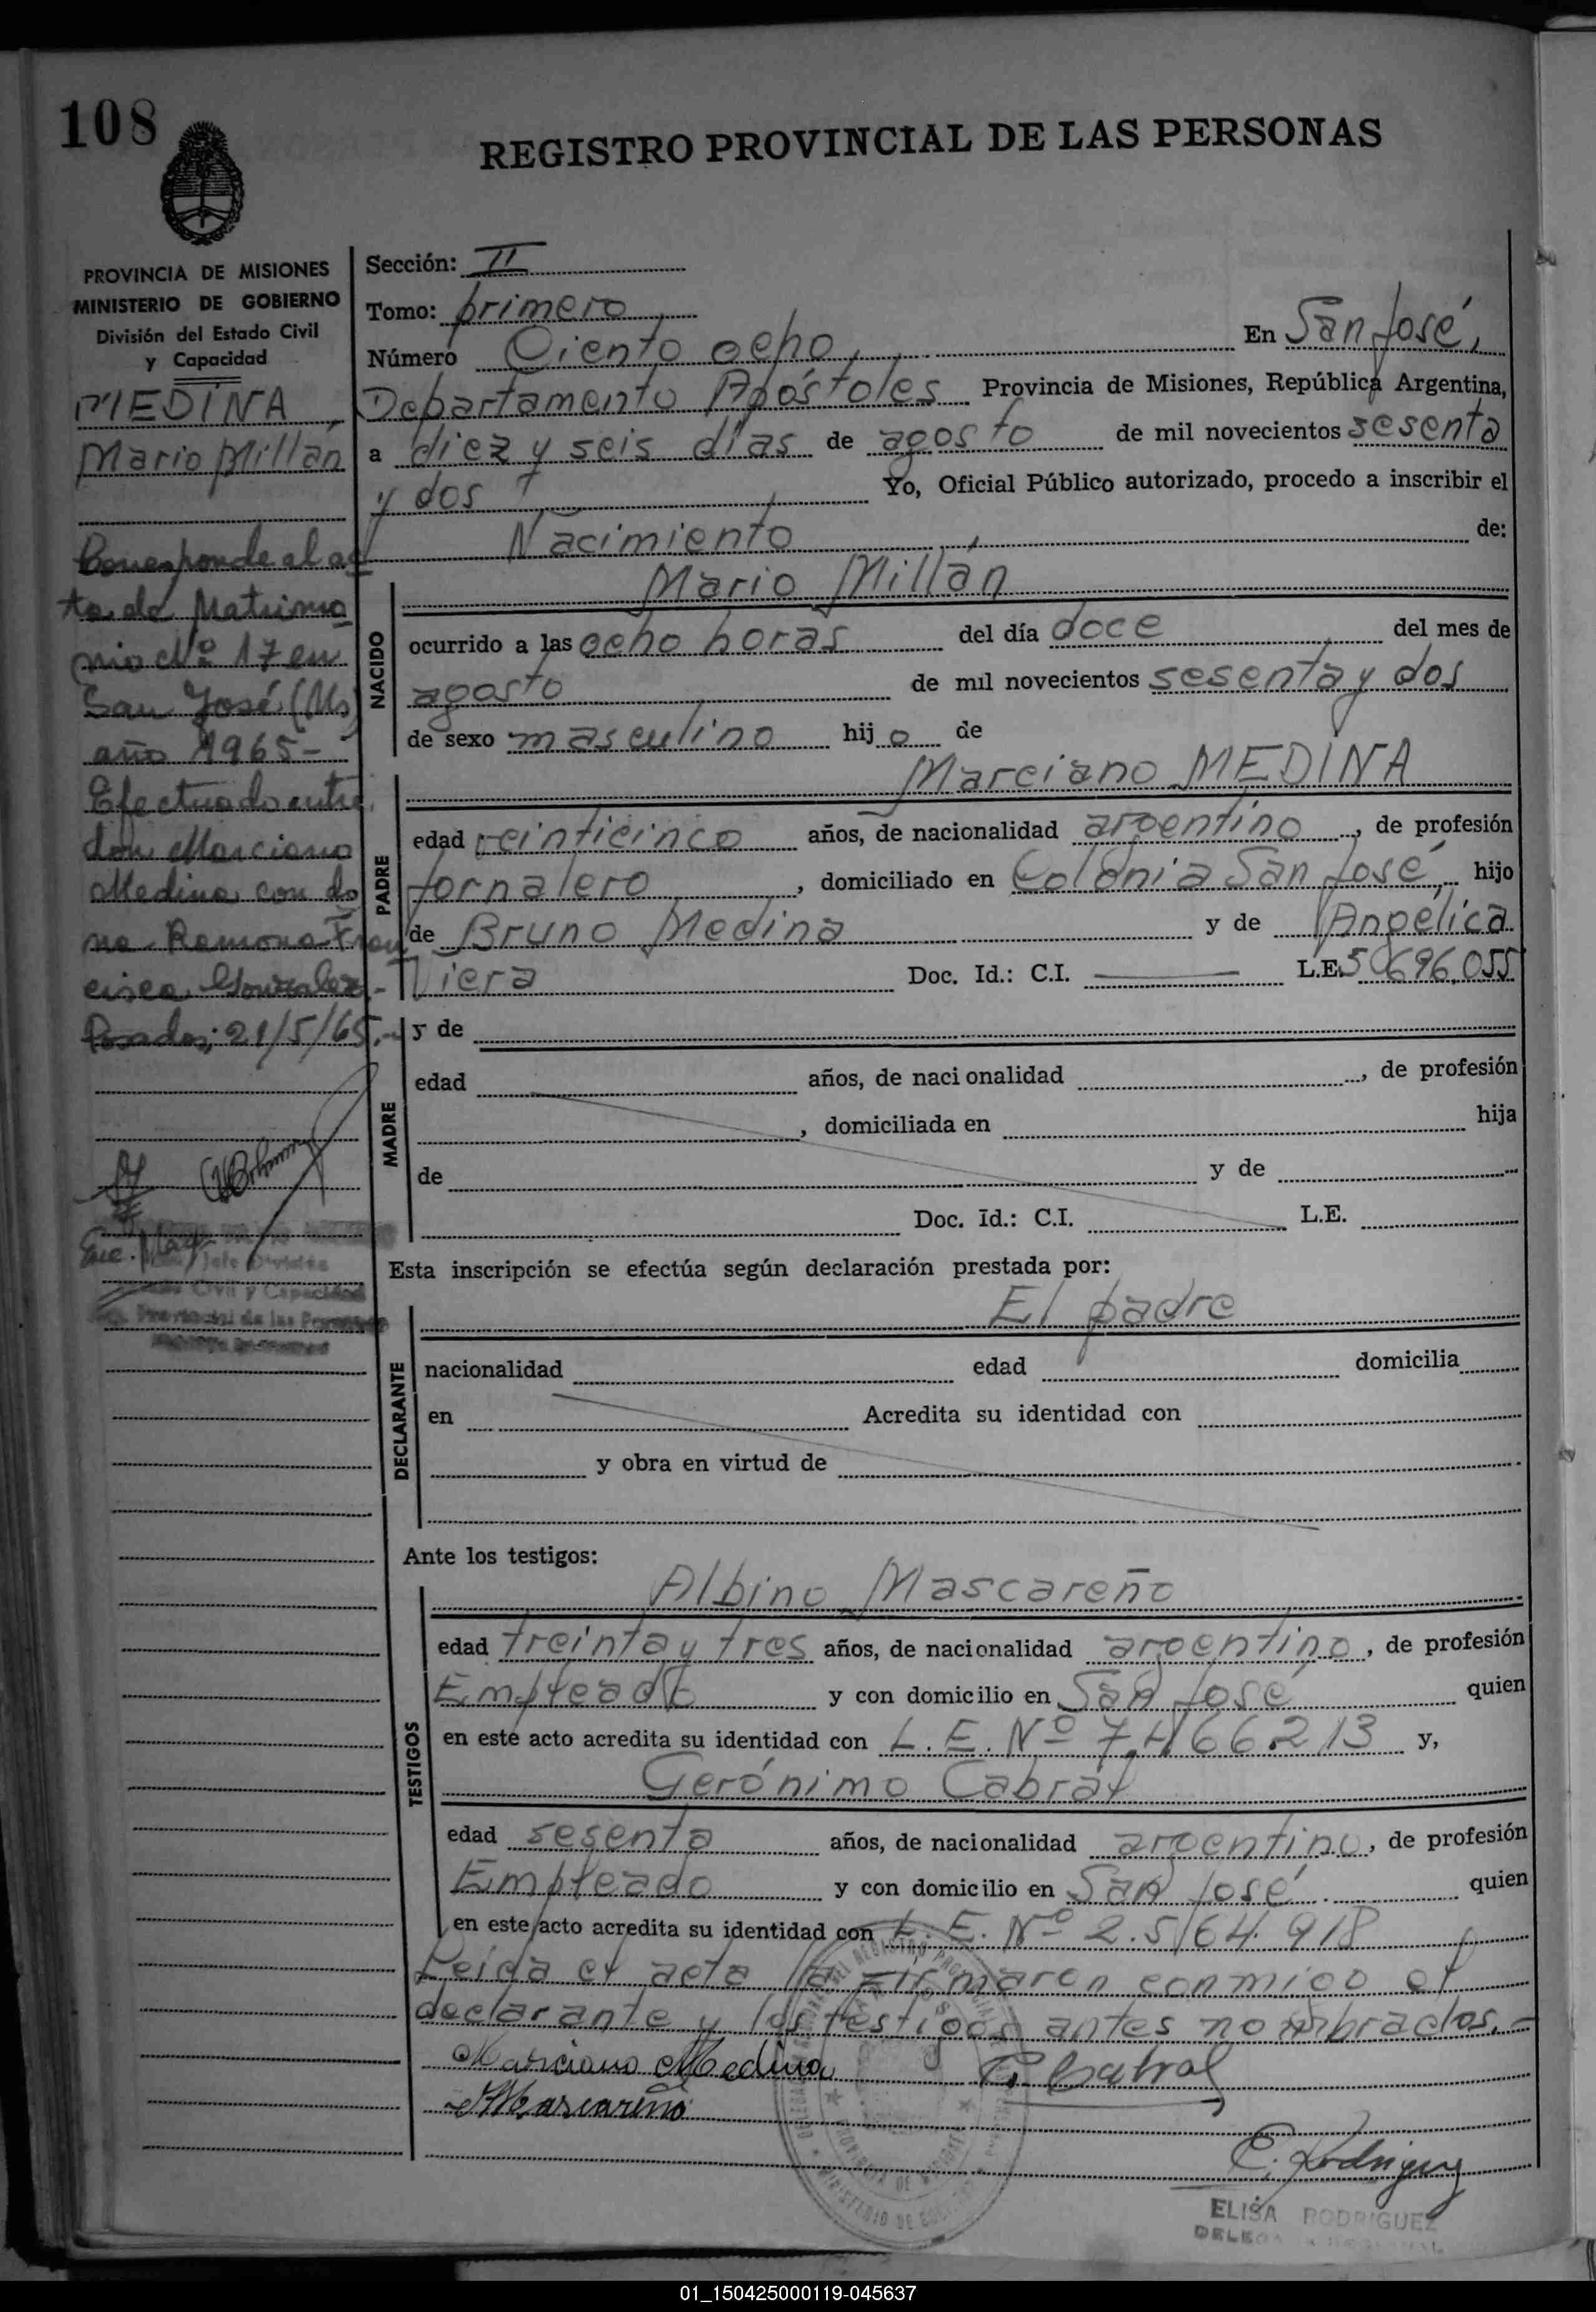 108
REGISTRO PROVINCIAL DE LAS PERSONAS
PROVINCIA DE MISIONES
MINISTERIO DE GOBIERNO
División del Estado Civil
y Capacidad
MEDINA
Mario Millán
Corresponde al ac
ta de Matrimo
nio Nº 17 en
San José (Ms)
año 1965-
Efectuado entre
don Marciano
Medina con do
na Ramona Fran
cisca Gonzalez.-
Posadas; 21/5/65.-
Sección: II
Tomo: primero
Número Ciento ocho, En San José,
Departamento Apóstoles Provincia de Misiones, República Argentina,
a diez y seis días de agosto de mil novecientos sesenta
y dos Yo, Oficial Público autorizado, procedo a inscribir el
Nacimiento de:
Mario Millán
NACIDO
ocurrido a las ocho horas del día doce del mes de
agosto de mil novecientos sesenta y dos
de sexo masculino hijo de
Marciano MEDINA
PADRE
edad veinticinco años, de nacionalidad argentino, de profesión
Jornalero, domiciliado en Colonia San José, hijo
de Bruno Medina y de Angélica
Viera Doc. Id.: C.I. L.E. 50696.055
MADRE
y de
edad años, de nacionalidad , de profesión
, domiciliada en hija
de y de
Doc. Id.: C.I. L.E.
Esta inscripción se efectúa según declaración prestada por:
El padre
DECLARANTE
nacionalidad edad domicilia
en Acredita su identidad con
y obra en virtud de
Ante los testigos:
Albino Mascareño
TESTIGOS
edad treinta y tres años, de nacionalidad argentino, de profesión
Empleado y con domicilio en San José quien
en este acto acredita su identidad con L.E. Nº 7.466.213 y,
Gerónimo Cabral
edad sesenta años, de nacionalidad argentino, de profesión
Empleado y con domicilio en San José quien
en este acto acredita su identidad con L.E. Nº 2.564.918
Leída el acta la firmaron conmigo el
declarante y los testigos antes nombrados.-
Marciano Medina G. Cabral
AMascareño
E. Rodriguez
ELISA RODRIGUEZ
01_150425000119-045637